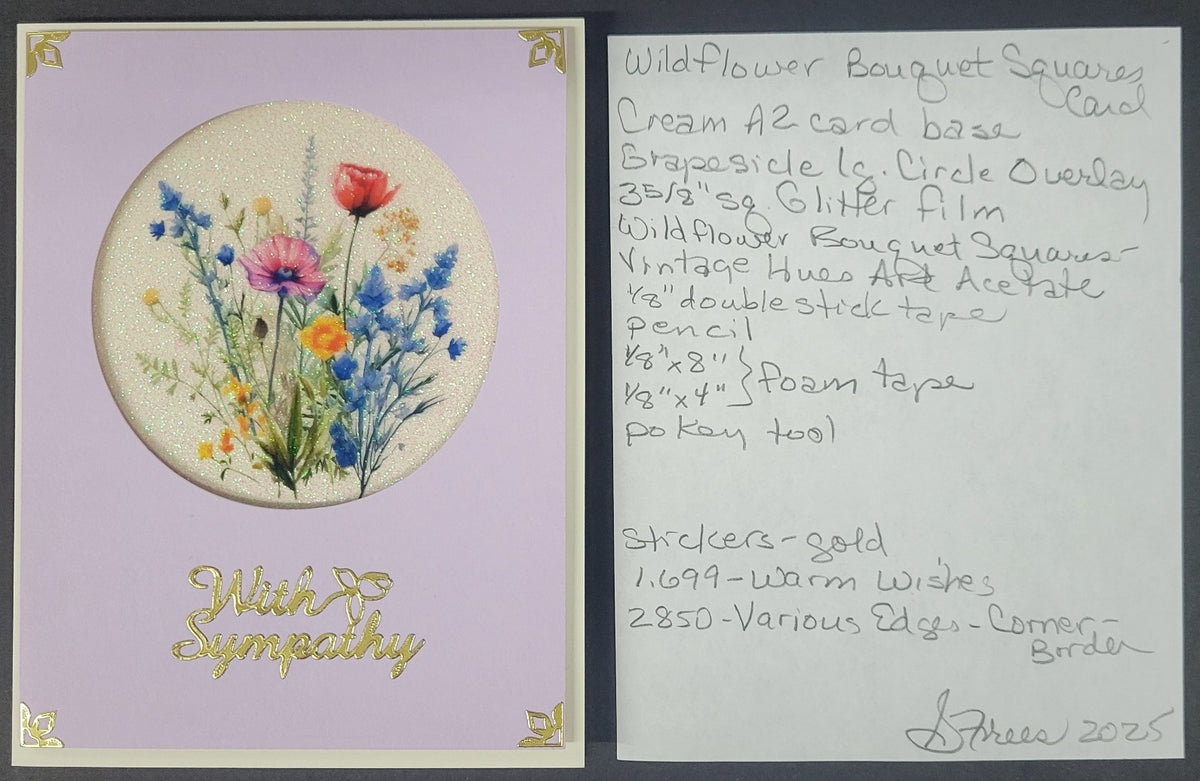 With
Sympathy
Wildflower Bouquet Squares
Card
Cream A2 card base
Grapesicle lg. Circle Overlay
3 5/8" sq. Glitter film
Wildflower Bouquet Squares-
Vintage Hues Art Acetate
1/8" double stick tape
pencil
1/8" x 8"
1/8" x 4" } foam tape
pokey tool
stickers-gold
1.699-Warm Wishes
2850-Various Edges-Corner-
Border
S Frees 2025